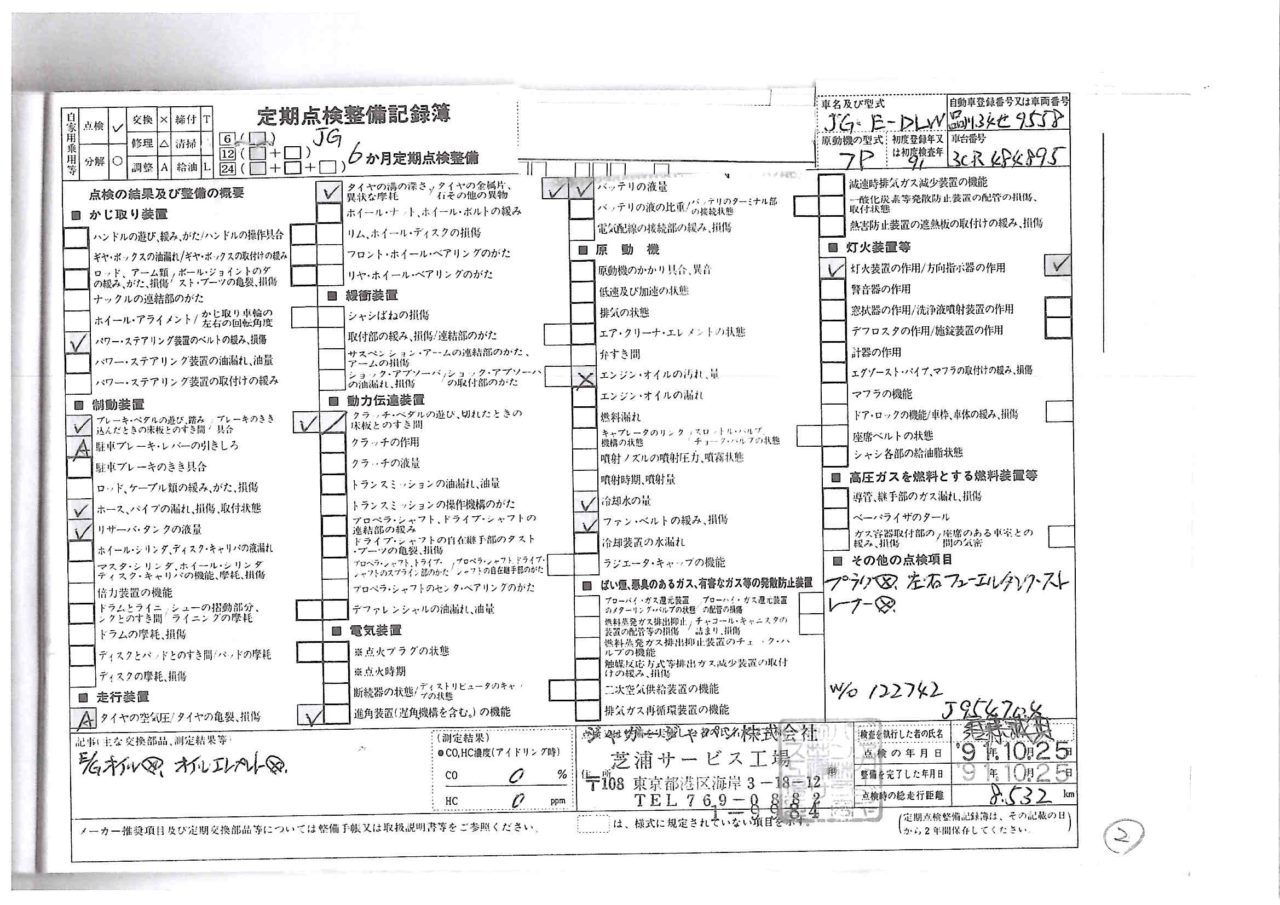 定期点検整備記録簿
自家用乗用等
点検 ✓ 交換 × 締付 T
修理 △ 清掃
分解 ○ 調整 A 給油 L
6
12
24
JG
6か月定期点検整備
車名及び型式
JG・E-DLW
自動車登録番号又は車両番号
品川34せ9558
原動機の型式
7P
初度登録年又は初度検査年
91
車台番号
3CR 484895
点検の結果及び整備の概要
■ かじ取り装置
ハンドルの遊び、緩み、がた/ハンドルの操作具合
ギヤ・ボックスの油漏れ/ギヤ・ボックスの取付けの緩み
ロッド、アーム類の緩み、がた、損傷/ボール・ジョイントのダスト・ブーツの亀裂、損傷
ナックルの連結部のがた
ホイール・アライメント/かじ取り車輪の左右の回転角度
✓ パワー・ステアリング装置のベルトの緩み、損傷
パワー・ステアリング装置の油漏れ、油量
パワー・ステアリング装置の取付けの緩み
■ 制動装置
✓ ブレーキ・ペダルの遊び、踏み込んだときの床板とのすき間/ブレーキのきき具合 ✓
A 駐車ブレーキ・レバーの引きしろ
駐車ブレーキのきき具合
ロッド、ケーブル類の緩み、がた、損傷
✓ ホース、パイプの漏れ、損傷、取付状態
✓ リザーバ・タンクの液量
ホイール・シリンダ、ディスク・キャリパの液漏れ
マスタ・シリンダ、ホイール・シリンダ、ディスク・キャリパの機能、摩耗、損傷
倍力装置の機能
ドラムとライニングとのすき間/シューの摺動部分、ライニングの摩耗
ドラムの摩耗、損傷
ディスクとパッドとのすき間/パッドの摩耗
ディスクの摩耗、損傷
■ 走行装置
A タイヤの空気圧/タイヤの亀裂、損傷 ✓
✓ タイヤの溝の深さ、異状な摩耗/タイヤの金属片、石その他の異物 ✓
ホイール・ナット、ホイール・ボルトの緩み
リム、ホイール・ディスクの損傷
フロント・ホイール・ベアリングのがた
リヤ・ホイール・ベアリングのがた
■ 緩衝装置
シャシばねの損傷
取付部の緩み、損傷/連結部のがた
サスペンション・アームの連結部のがた、アームの損傷
ショック・アブソーバの油漏れ、損傷/ショック・アブソーバの取付部のがた
■ 動力伝達装置
クラッチ・ペダルの遊び、切れたときの床板とのすき間
クラッチの作用
クラッチの液量
トランスミッションの油漏れ、油量
トランスミッションの操作機構のがた
プロペラ・シャフト、ドライブ・シャフトの連結部の緩み
ドライブ・シャフトの自在継手部のダスト・ブーツの亀裂、損傷
プロペラ・シャフト、ドライブ・シャフトのスプライン部のがた/プロペラ・シャフト、ドライブ・シャフトの自在継手部のがた
プロペラ・シャフトのセンタ・ベアリングのがた
デファレンシャルの油漏れ、油量
■ 電気装置
※点火プラグの状態
※点火時期
断続器の状態/ディストリビュータのキャップの状態
進角装置(遅角機構を含む。)の機能
✓ バッテリの液量
バッテリの液の比重/バッテリのターミナル部の接続状態
電気配線の接続部の緩み、損傷
■ 原動機
原動機のかかり具合、異音
低速及び加速の状態
排気の状態
エア・クリーナ・エレメントの状態
弁すき間
× エンジン・オイルの汚れ、量
エンジン・オイルの漏れ
燃料漏れ
キャブレータのリンク機構の状態/スロットル・バルブ、チョーク・バルブの状態
噴射ノズルの噴射圧力、噴霧状態
噴射時期、噴射量
✓ 冷却水の量
✓ ファン・ベルトの緩み、損傷
冷却装置の水漏れ
ラジエータ・キャップの機能
■ ばい煙、悪臭のあるガス、有害なガス等の発散防止装置
ブローバイ・ガス還元装置のメターリング・バルブの状態/ブローバイ・ガス還元装置の配管の損傷
燃料蒸発ガス排出抑止装置の配管等の損傷/チャコール・キャニスタの詰まり、損傷
燃料蒸発ガス排出抑止装置のチェック・バルブの機能
触媒反応方式等排出ガス減少装置の取付けの緩み、損傷
二次空気供給装置の機能
排気ガス再循環装置の機能
減速時排気ガス減少装置の機能
一酸化炭素等発散防止装置の配管の損傷、取付状態
熱害防止装置の遮熱板の取付けの緩み、損傷
■ 灯火装置等
✓ 灯火装置の作用/方向指示器の作用 ✓
警音器の作用
窓拭器の作用/洗浄液噴射装置の作用
デフロスタの作用/施錠装置の作用
計器の作用
エグゾースト・パイプ、マフラの取付けの緩み、損傷
マフラの機能
ドア・ロックの機能/車枠、車体の緩み、損傷
座席ベルトの状態
シャシ各部の給油脂状態
■ 高圧ガスを燃料とする燃料装置等
導管、継手部のガス漏れ、損傷
ベーパライザのタール
ガス容器取付部の緩み、損傷/座席のある車室との間の気密
■ その他の点検項目
プラグ⊗. 左右フューエルタンクーストレーナー⊗.
W/O 122742
記事(主な交換部品、測定結果等)
E/Gオイル⊗, オイルエレメント⊗.
(測定結果)
●CO,HC濃度(アイドリング時)
CO 0 %
HC 0 ppm
ジャガージャパン株式会社
芝浦サービス工場
〒108 東京都港区海岸3-18-12
TEL769-0882
1-9984
検査を執行した者の氏名
点検の年月日 '91年10月25日
整備を完了した年月日 '91年10月25日
点検時の総走行距離 8.532 km
メーカー推奨項目及び定期交換部品等については整備手帳又は取扱説明書等をご参照ください。
は、様式に規定されていない項目を示す。
(定期点検整備記録簿は、その記載の日から2年間保存してください。)
②